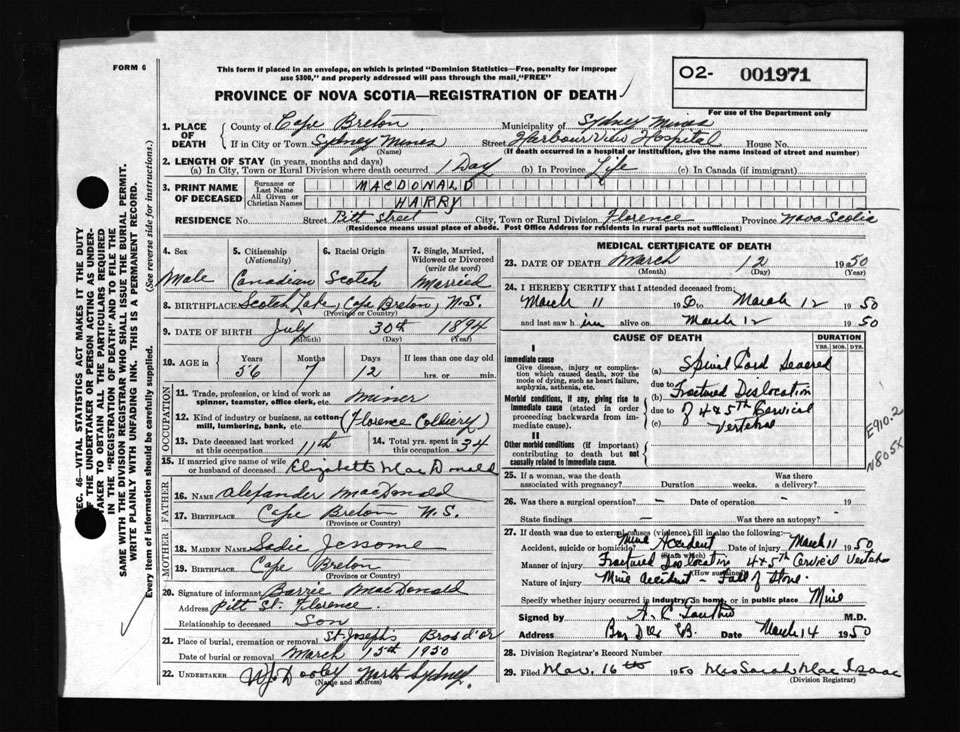 FORM 6
This form if placed in an envelope, on which is printed "Dominion Statistics—Free, penalty for improper
use $300," and properly addressed will pass through the mail "FREE"
PROVINCE OF NOVA SCOTIA—REGISTRATION OF DEATH
02- 001971
For use of the Department only
SEC. 46—VITAL STATISTICS ACT MAKES IT THE DUTY
OF THE UNDERTAKER OR PERSON ACTING AS UNDER-
TAKER TO OBTAIN ALL THE PARTICULARS REQUIRED
IN THE "REGISTRATION OF DEATH" AND TO FILE THE
SAME WITH THE DIVISION REGISTRAR WHO SHALL ISSUE THE BURIAL PERMIT.
WRITE PLAINLY WITH UNFADING INK. THIS IS A PERMANENT RECORD.
Every item of information should be carefully supplied. (See reverse side for instructions.)
1. PLACE OF DEATH County of Cape Breton Municipality of Sydney Mines
If in City or Town Sydney Mines Street Harbour View Hospital House No.
(Name) (If death occurred in a hospital or institution, give the name instead of street and number)
2. LENGTH OF STAY (in years, months and days)
(a) In City, Town or Rural Division where death occurred 1 Day (b) In Province Life (c) In Canada (if immigrant)
3. PRINT NAME OF DECEASED Surname or Last Name MACDONALD
All Given or Christian Names HARRY
RESIDENCE No. Street Pitt Street City, Town or Rural Division Florence Province Nova Scotia
(Residence means usual place of abode. Post Office Address for residents in rural parts not sufficient)
4. Sex Male
5. Citizenship (Nationality) Canadian
6. Racial Origin Scotch
7. Single, Married, Widowed or Divorced (write the word) Married
8. BIRTHPLACE Scotch Lake, (Cape Breton) N.S.
(Province or Country)
9. DATE OF BIRTH July 30th 1894
(Month) (Day) (Year)
10. AGE in Years 56 Months 7 Days 12 If less than one day old hrs. or min.
OCCUPATION
11. Trade, profession, or kind of work as spinner, teamster, office clerk, etc. miner
12. Kind of industry or business, as cotton mill, lumbering, bank, etc. (Florence Colliery)
13. Date deceased last worked at this occupation 11th 14. Total yrs. spent in this occupation 34
15. If married give name of wife or husband of deceased Elizabeth MacDonald
FATHER
16. NAME Alexander MacDonald
17. BIRTHPLACE Cape Breton N.S.
(Province or Country)
MOTHER
18. MAIDEN NAME Sadie Jessome
19. BIRTHPLACE Cape Breton
(Province or Country)
20. Signature of informant Barrie MacDonald
Address Pitt St. Florence.
Relationship to deceased Son
21. Place of burial, cremation or removal St. Joseph's Bras d'or
Date of burial or removal March 15th 1950
22. UNDERTAKER W.J. Dooley North Sydney.
(Name and address)
MEDICAL CERTIFICATE OF DEATH
23. DATE OF DEATH March 12 1950
(Month) (Day) (Year)
24. I HEREBY CERTIFY that I attended deceased from:
March 11 1950 to March 12 1950
and last saw him alive on March 12 1950
CAUSE OF DEATH DURATION
YRS. MOS. DYS.
I
Immediate cause
Give disease, injury or complication which caused death, NOT the mode of dying, such as heart failure, asphyxia, asthenia, etc.
(a) Spinal Cord Severed
due to
Morbid conditions, if any, giving rise to immediate cause (stated in order proceeding backwards from immediate cause).
(b) Fractured Dislocation
due to of 4 & 5th Cervical
(c) Vertebrae
II
Other morbid conditions (if important) contributing to death but not causally related to immediate cause.
E910.2
N805X
25. If a woman, was the death associated with pregnancy? Duration weeks. Was there a delivery?
26. Was there a surgical operation? – Date of operation – 19
State findings – Was there an autopsy? -
27. If death was due to external causes (violence) fill in also the following:—
Accident, suicide or homicide? Mine Accident Date of injury March 11 1950
(State which)
Manner of injury Fractured Dislocation 4 & 5th Cervical Vertebra
(How sustained)
Nature of injury Mine accident – Fall of Stone.
Specify whether injury occurred in industry, in home, or in public place Mine
Signed by M.D.
Address Date March 14 1950
28. Division Registrar's Record Number
29. Filed Mar. 16th 1950 Mrs Sarah MacIsaac
(Division Registrar)